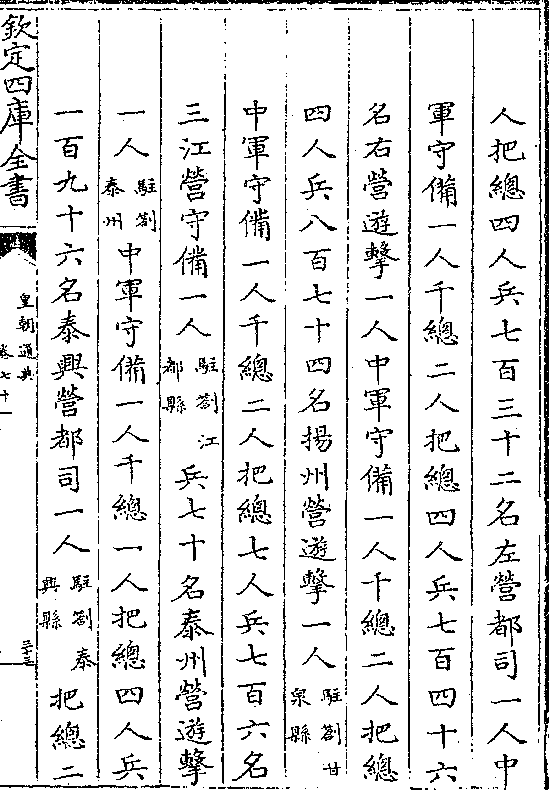 人把總四人兵七百三十二名左營都司一人中
軍守備一人千總二人把總四人兵七百四十六
名右營遊擊一人中軍守備一人千總二人把總
四人兵八百七十四名揚州營遊擊一人駐劄甘泉縣
中軍守備一人千總二人把總七人兵七百六名
三江營守備一人駐劄江都縣兵七十名泰州營遊擊
一人駐劄泰州中軍守備一人千總一人把總四人兵
一百九十六名泰興營都司一人駐劄泰興縣把總二
欽定四庫全書
皇朝通典
卷七十